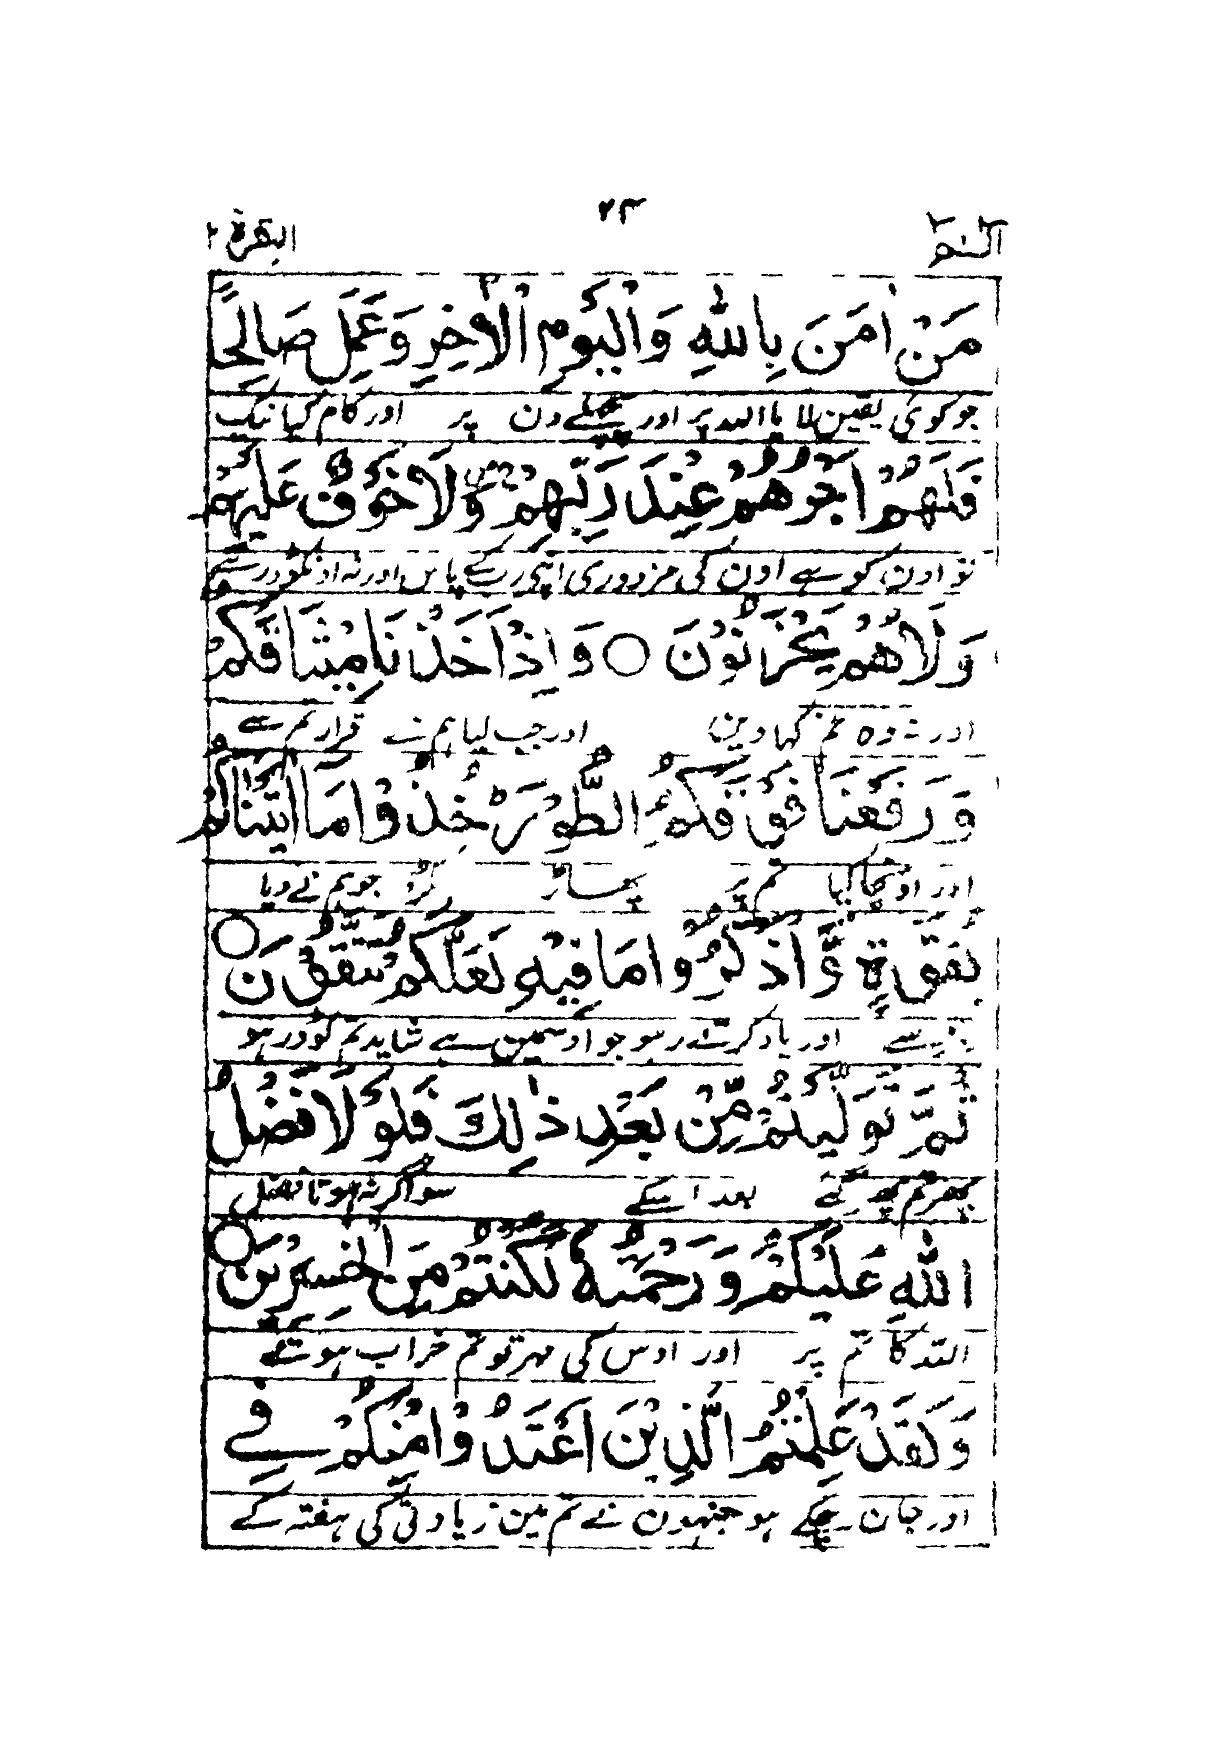 البقرة ٢ ٢٣ الٓمٓ
مَنْ اٰمَنَ بِاللّٰهِ وَالْيَوْمِ الْاٰخِرِ وَعَمِلَ صَالِحًا
جو کوئی یقین لایا اللہ پر اور پچھلے دن پر اور کام کیا نیک
فَلَهُمْ اَجْرُهُمْ عِنْدَ رَبِّهِمْ وَلَا خَوْفٌ عَلَيْهِمْ
تو اون کو ہے اون کی مزدوری اپنی رب کے پاس اور نہ اونکو ڈر ہے
وَلَا هُمْ يَحْزَنُوْنَ ○ وَاِذْ اَخَذْنَا مِيْثَاقَكُمْ
اور نہ وہ غم کہاوین اور جب لیا ہم نے قرار تم سے
وَرَفَعْنَا فَوْقَكُمُ الطُّوْرَ خُذُوْا مَا اٰتَيْنٰكُمْ
اور اونچا کیا تم پر پہاڑ پکڑو جو ہم نے دیا
بِقُوَّةٍ وَّاذْكُرُوْا مَا فِيْهِ لَعَلَّكُمْ تَتَّقُوْنَ ○
زور سے اور یاد کرتے رہو جو اوسمین ہے شاید تم کو ڈر ہو
ثُمَّ تَوَلَّيْتُمْ مِّنْ بَعْدِ ذٰلِكَ فَلَوْ لَا فَضْلُ
پھر تم پھر گئے بعد اسکے سو اگر نہ ہوتا فضل
اللّٰهِ عَلَيْكُمْ وَرَحْمَتُهٗ لَكُنْتُمْ مِّنَ الْخٰسِرِيْنَ ○
اللہ کا تم پر اور اوس کی مہر تو تم خراب ہوتے
وَلَقَدْ عَلِمْتُمُ الَّذِيْنَ اعْتَدَوْا مِنْكُمْ فِي
اور جان چکے ہو جنہون نے تم مین زیادتی کی ہفتہ کے